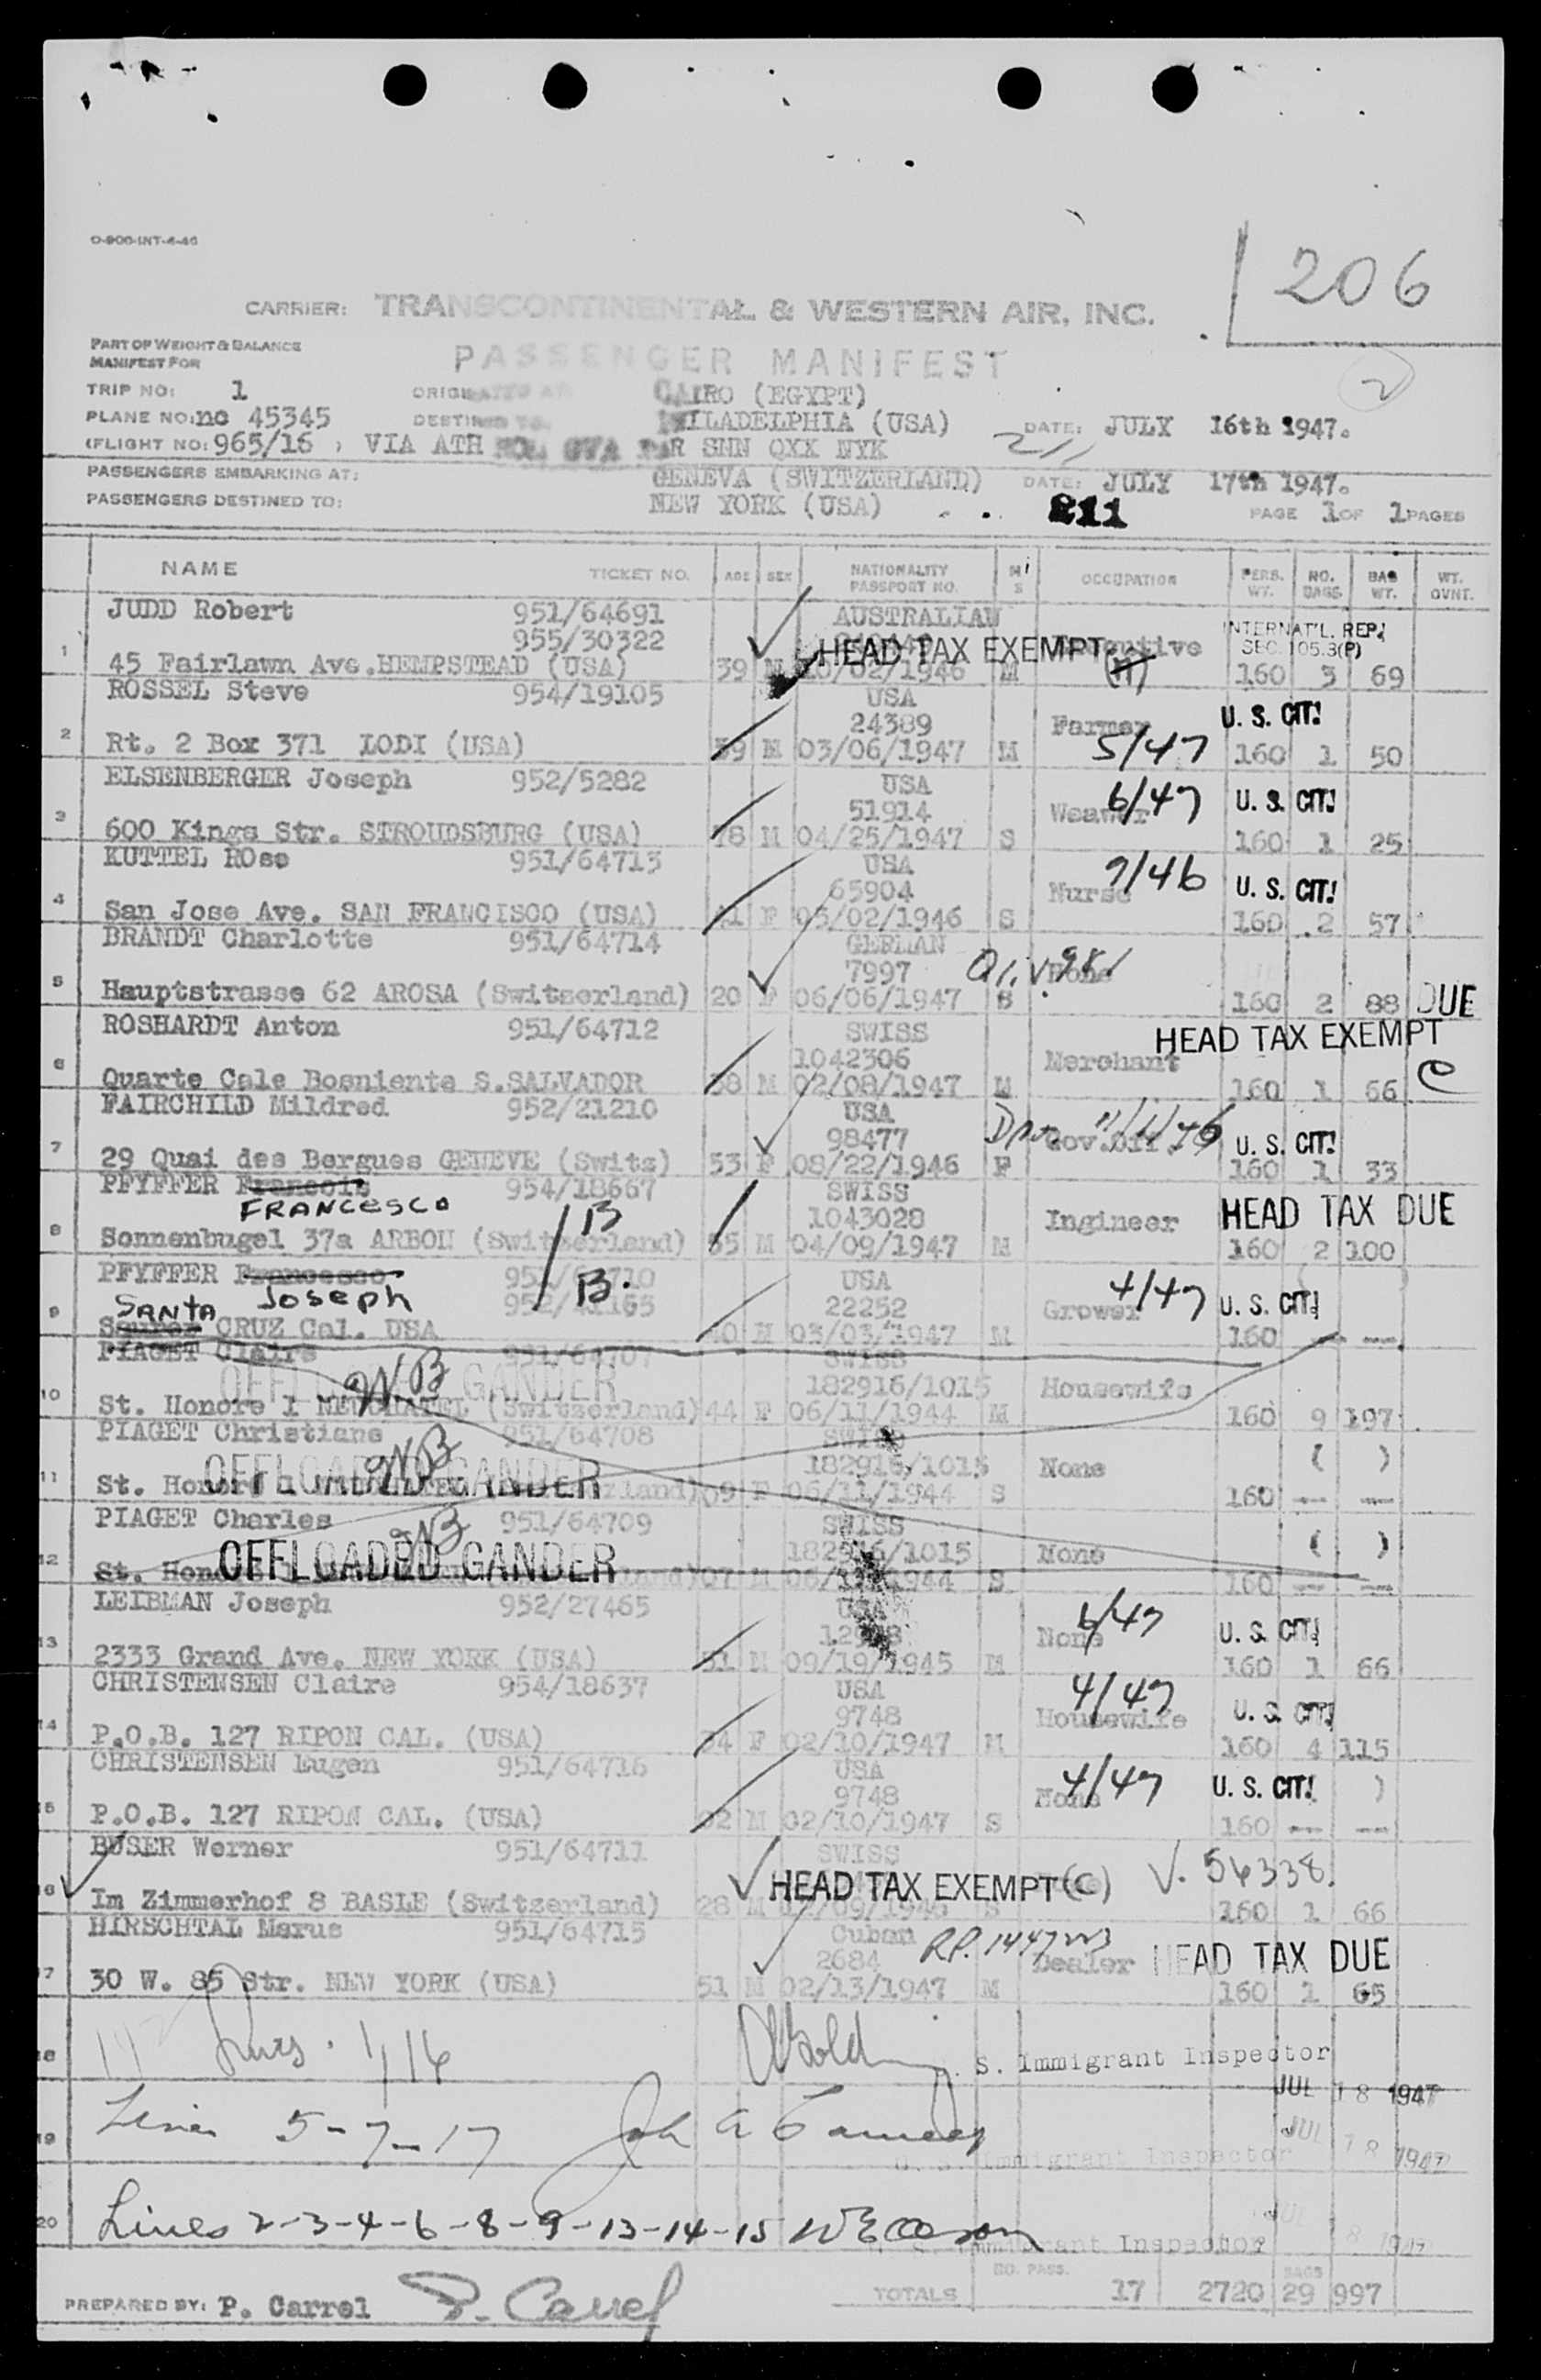 O-900-INT-4-46
206
CARRIER: TRANSCONTINENTAL & WESTERN AIR, INC.
PART OF WEIGHT & BALANCE
MANIFEST FOR
PASSENGER MANIFEST
2
TRIP NO: 1 CAIRO (EGYPT)
PLANE NO: nc 45345 PHILADELPHIA (USA) DATE: JULY 16th 1947.
(FLIGHT NO: 965/16 , VIA ATH ROM GVA PAR SNN QXX NYK 211
PASSENGERS EMBARKING AT: GENEVA (SWITZERLAND) DATE: JULY 17th 1947.
PASSENGERS DESTINED TO: NEW YORK (USA) 211 PAGE 1 OF 1 PAGES
NAME TICKET NO. AGE SEX NATIONALITY PASSPORT NO. M S OCCUPATION PERS. WT. NO. BAGS BAG WT. WT. OVNT.
JUDD Robert 951/64691 AUSTRALIAN INTERNAT'L. REP.
1 955/30322 HEAD TAX EXEMPT SEC. 105.3(P)
45 Fairlawn Ave. HEMPSTEAD (USA) 39 M /02/1946 M (H) 160 3 69
ROSSEL Steve 954/19105 USA U. S. CIT.
2 24389 Farmer
Rt. 2 Box 371 LODI (USA) 59 M 03/06/1947 M 5/47 160 1 50
ELSENBERGER Joseph 952/5282 USA 6/47 U. S. CIT.
3 51914 Weaver
600 Kings Str. STROUDSBURG (USA) 78 M 04/25/1947 S 160 1 25
KUTTEL ROse 951/64713 USA 9/46
4 65904 Nurse U. S. CIT.
San Jose Ave. SAN FRANCISCO (USA) 41 F 05/02/1946 S 160 2 57
BRANDT Charlotte 951/64714 GERMAN
5 7997 None
Hauptstrasse 62 AROSA (Switzerland) 20 F 06/06/1947 S 160 2 88 DUE
ROSHARDT Anton 951/64712 SWISS HEAD TAX EXEMPT
6 1042306 Merchant C
Quarte Cale Bosniente S.SALVADOR 38 M 02/08/1947 M 160 1 66
FAIRCHILD Mildred 952/21210 USA
7 98477 Gov.Off. U. S. CIT.
29 Quai des Bergues GENEVE (Switz) 53 F 08/22/1946 F 160 1 33
PFYFFER Francois 954/18667 SWISS
FRANCESCO B 1043028 Ingineer HEAD TAX DUE
8 Sonnenbugel 37a ARBON (Switzerland) 55 M 04/09/1947 M 160 2 100
PFYFFER Francesco USA 4/47
9 SANTA Joseph B. 22252 Grower U. S. CIT.
CRUZ Cal. USA 40 M 03/03/1947 M 160 -- --
PIAGET Claire 951/64707 SWISS
10 OFFLOADED GANDER NB 182916/1015 Housewife
St. Honore 1 NEUCHATEL (Switzerland) 44 F 06/11/1944 M 160 9 197
PIAGET Christiane 951/64708 SWISS
11 OFFLOADED GANDER NB 182916/1015 None ( )
St. Honore 1 NEUCHATEL (Switzerland) 09 F 06/11/1944 S 160 -- --
PIAGET Charles 951/64709 SWISS
12 OFFLOADED GANDER NB 182916/1015 None ( )
St. Honore 07 M 06/11/1944 S 160 -- --
LEIBMAN Joseph 952/27465 USA 6/47
13 None U. S. CIT.
2333 Grand Ave. NEW YORK (USA) 51 M 09/19/1945 M 160 1 66
CHRISTENSEN Claire 954/18637 USA 4/47
14 9748 Housewife U. S. CIT.
P.O.B. 127 RIPON CAL. (USA) 34 F 02/10/1947 M 160 4 115
CHRISTENSEN Eugen 951/64716 USA 4/47
15 9748 None U. S. CIT. )
P.O.B. 127 RIPON CAL. (USA) 02 M 02/10/1947 S 160 -- --
BUSER Werner 951/64711 SWISS V. 56338.
16 HEAD TAX EXEMPT (C)
Im Zimmerhof 8 BASLE (Switzerland) 28 M /09/1946 S 160 1 66
HIRSCHTAL Marus 951/64715 Cuban
17 2684 Dealer HEAD TAX DUE
30 W. 85 Str. NEW YORK (USA) 51 M 02/13/1947 M 160 1 65
18 1/16 U. S. Immigrant Inspector
JUL 18 1947
19 Lines 5-7-17 U. S. Immigrant Inspector JUL 18 1947
20 Lines 2-3-4-6-8-9-13-14-15 U. S. Immigrant Inspector JUL 18 1947
NO. PASS. BAGS
TOTALS 17 2720 29 997
PREPARED BY: P. Carrel P. Carrel